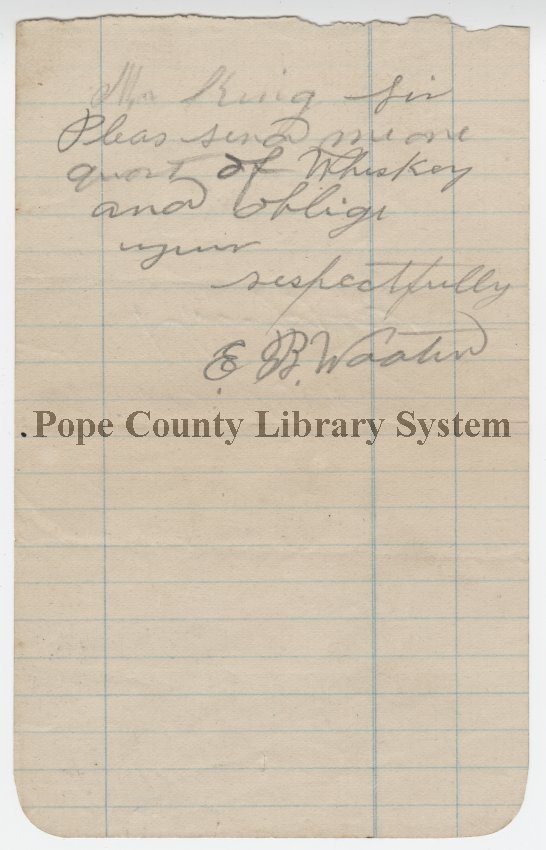 Mr King Sir
Pleas send me one
quart of Whiskey
and oblige
your
respectfully
E. B. Wooten
.Pope County Library System